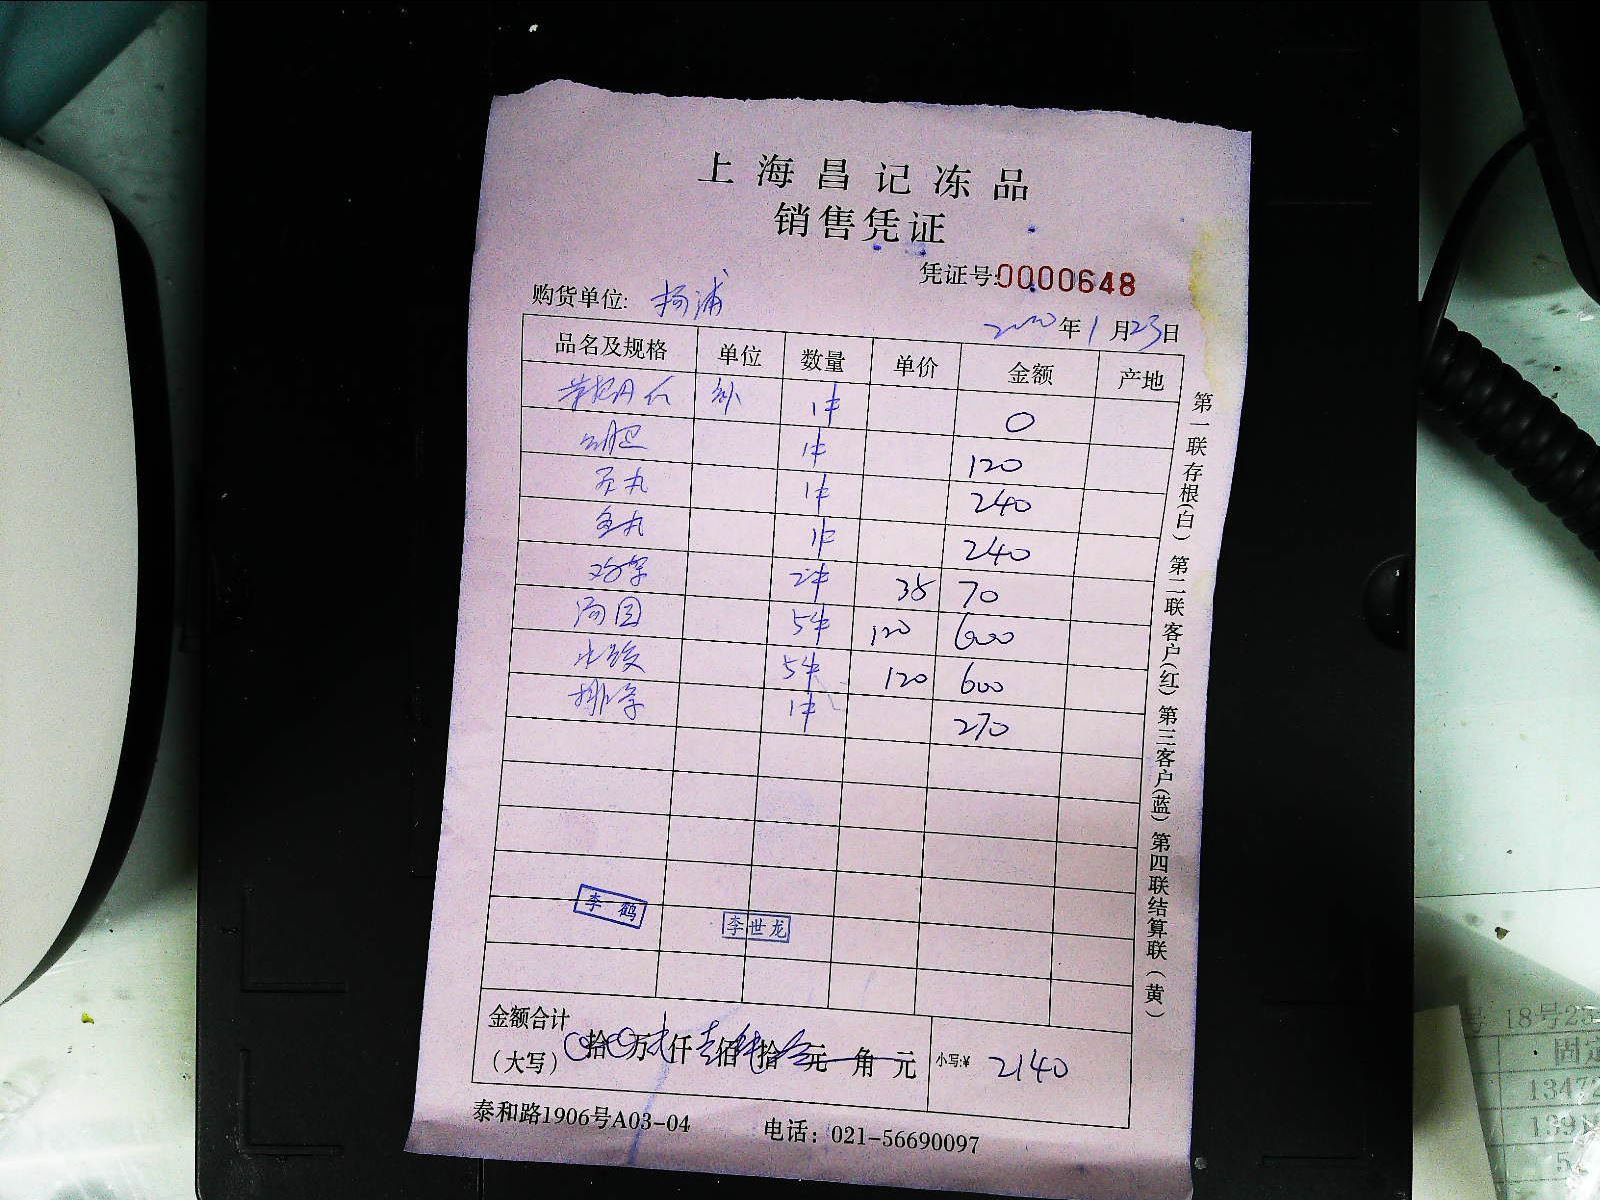 上海昌记冻品
销售凭证
凭证号:0000648
购货单位:
2020年1月23日
品名及规格 单位 数量 单价 金额 产地
1件 0
1件 120
贡丸 1件 240
鱼丸 1件 240
2件 35 70
汤团 5件 120 600
水饺 5件 120 600
1件 270
李鹤
李世龙
金额合计
(大写) 拾 万 仟 佰 拾 元 角 元 小写:¥ 2140
泰和路1906号A03-04 电话：021-56690097
第一联存根(白) 第二联客户(红) 第三客户(蓝) 第四联结算联(黄)
号 18号
1347
139